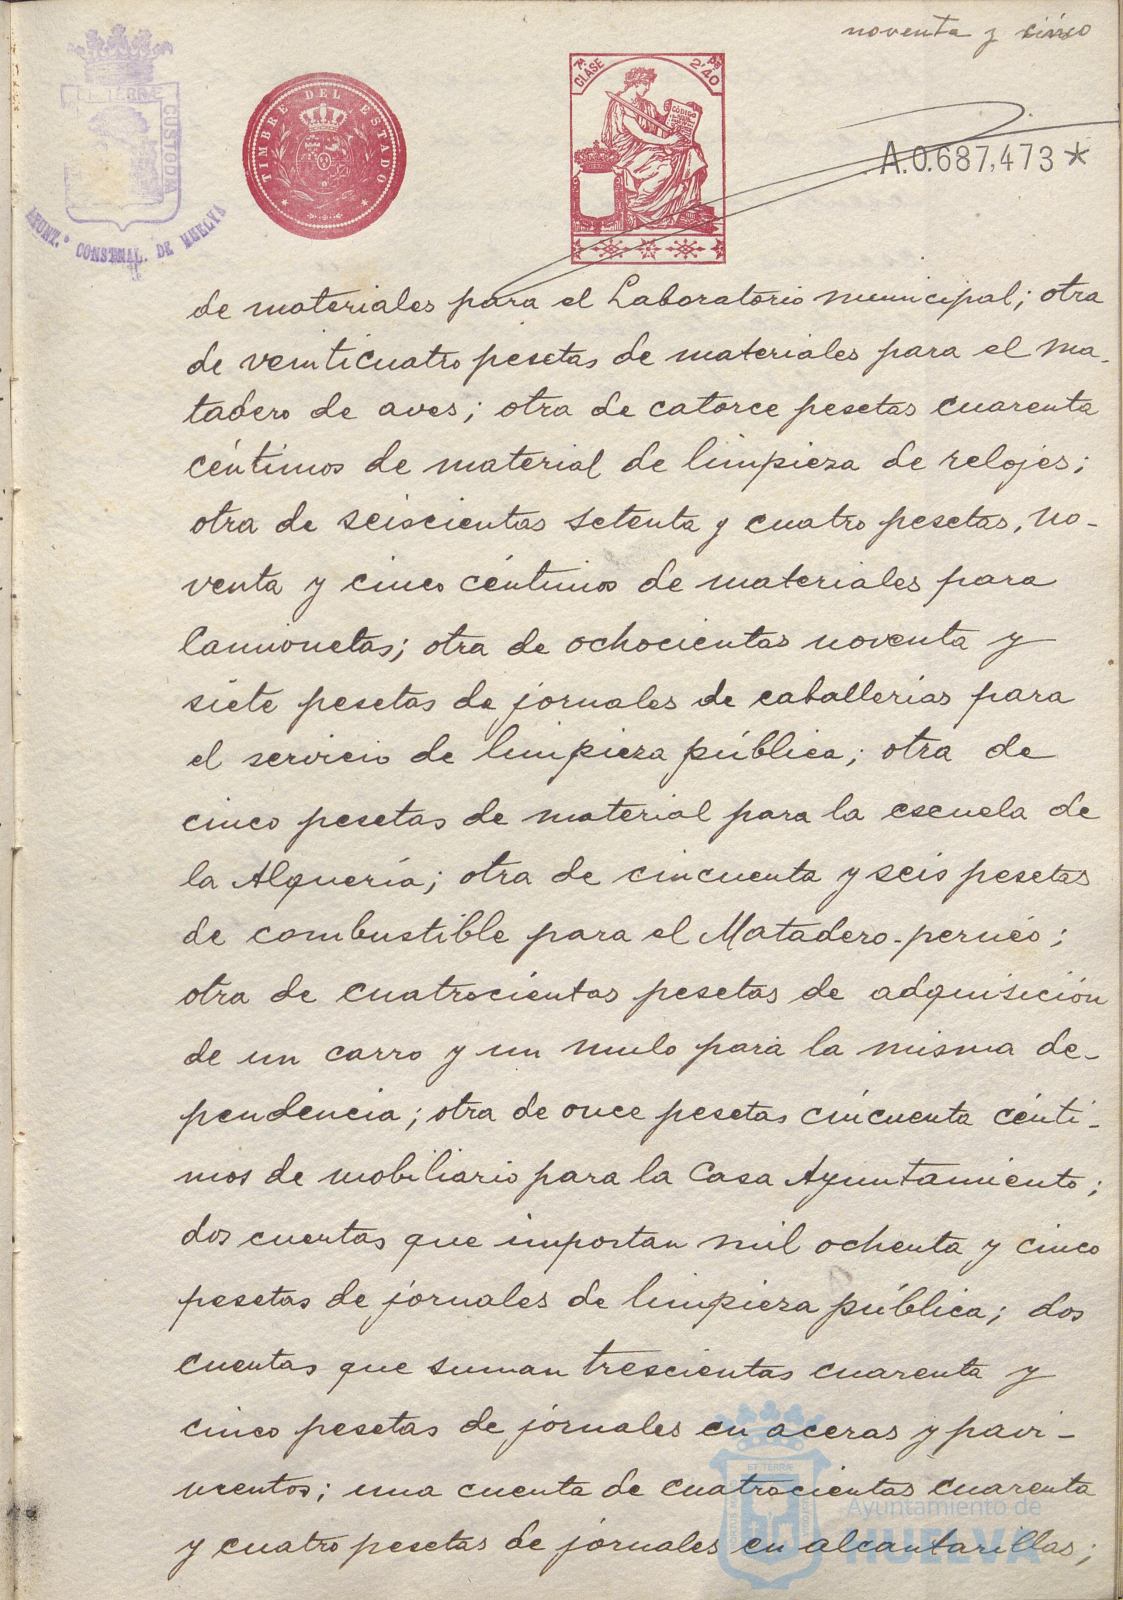 noventa y cinco
TIMBRE DEL ESTADO
7ª CLASE
2'40
CÓDIGO
A.0.687,473*
CUSTODIA
AYUNT.º CONSTNAL. DE HUELVA
de materiales para el Laboratorio municipal; otra
de veinticuatro pesetas de materiales para el ma-
tadero de aves; otra de catorce pesetas cuarenta
céntimos de material de limpieza de relojes;
otra de seiscientas setenta y cuatro pesetas, no-
venta y cinco céntimos de materiales para
Camionetas; otra de ochocientas noventa y
siete pesetas de jornales de caballerías para
el servicio de limpieza pública; otra de
cinco pesetas de material para la escuela de
la Alquería; otra de cincuenta y seis pesetas
de combustible para el Matadero-perneo;
otra de cuatrocientas pesetas de adquisición
de un carro y un mulo para la misma de-
pendencia; otra de once pesetas cincuenta cénti-
mos de mobiliario para la Casa Ayuntamiento;
dos cuentas que importan mil ochenta y cinco
pesetas de jornales de limpieza pública; dos
cuentas que suman trescientas cuarenta y
cinco pesetas de jornales en aceras y pavi-
mentos; una cuenta de cuatrocientas cuarenta
y cuatro pesetas de jornales en alcantarillas;
Ayuntamiento de
HUELVA